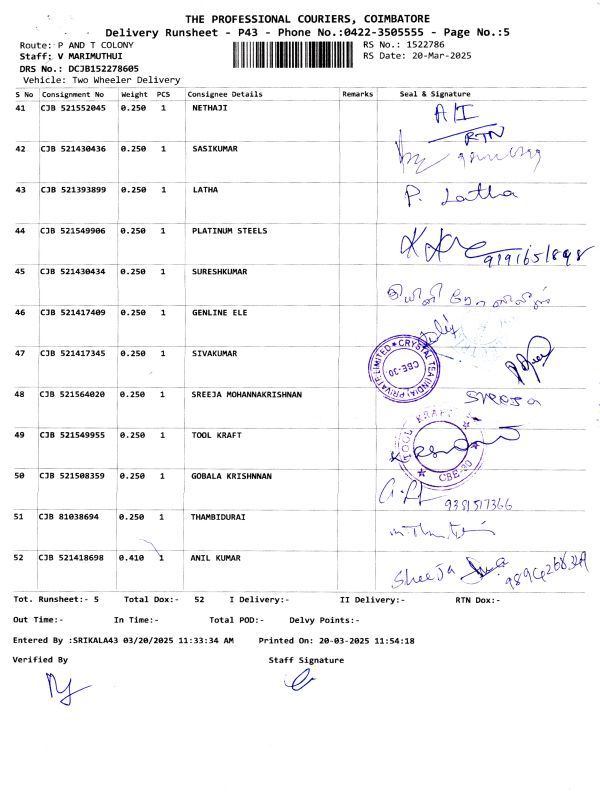 THE PROFESSIONAL COURIERS, COIMBATORE
Delivery Runsheet - P43 - Phone No.:0422-3505555 - Page No.:5
Route: P AND T COLONY
RS No.: 1522786
Staff: V MARIMUTHUI
RS Date: 20-Mar-2025
DRS No.: DCJB152278605
Vehicle: Two Wheeler Delivery
S No Consignment No Weight PCS Consignee Details Remarks Seal & Signature
41 CJB 521552045 0.250 1 NETHAJI A/I
RTN
42 CJB 521430436 0.250 1 SASIKUMAR
43 CJB 521393899 0.250 1 LATHA P. Latha
44 CJB 521549906 0.250 1 PLATINUM STEELS
45 CJB 521430434 0.250 1 SURESHKUMAR
46 CJB 521417409 0.250 1 GENLINE ELE
47 CJB 521417345 0.250 1 SIVAKUMAR
CRYSTAL TEA (INDIA) PRIVATE LIMITED
CBE-30
48 CJB 521564020 0.250 1 SREEJA MOHANNAKRISHNAN Sreeja
49 CJB 521549955 0.250 1 TOOL KRAFT
TOOL KRAFT
CBE-30
50 CJB 521508359 0.250 1 GOBALA KRISHNNAN
9381517366
51 CJB 81038694 0.250 1 THAMBIDURAI
52 CJB 521418698 0.410 1 ANIL KUMAR Sheeja
Tot. Runsheet:- 5 Total Dox:- 52 I Delivery:- II Delivery:- RTN Dox:-
Out Time:- In Time:- Total POD:- Delvy Points:-
Entered By :SRIKALA43 03/20/2025 11:33:34 AM Printed On: 20-03-2025 11:54:18
Verified By Staff Signature